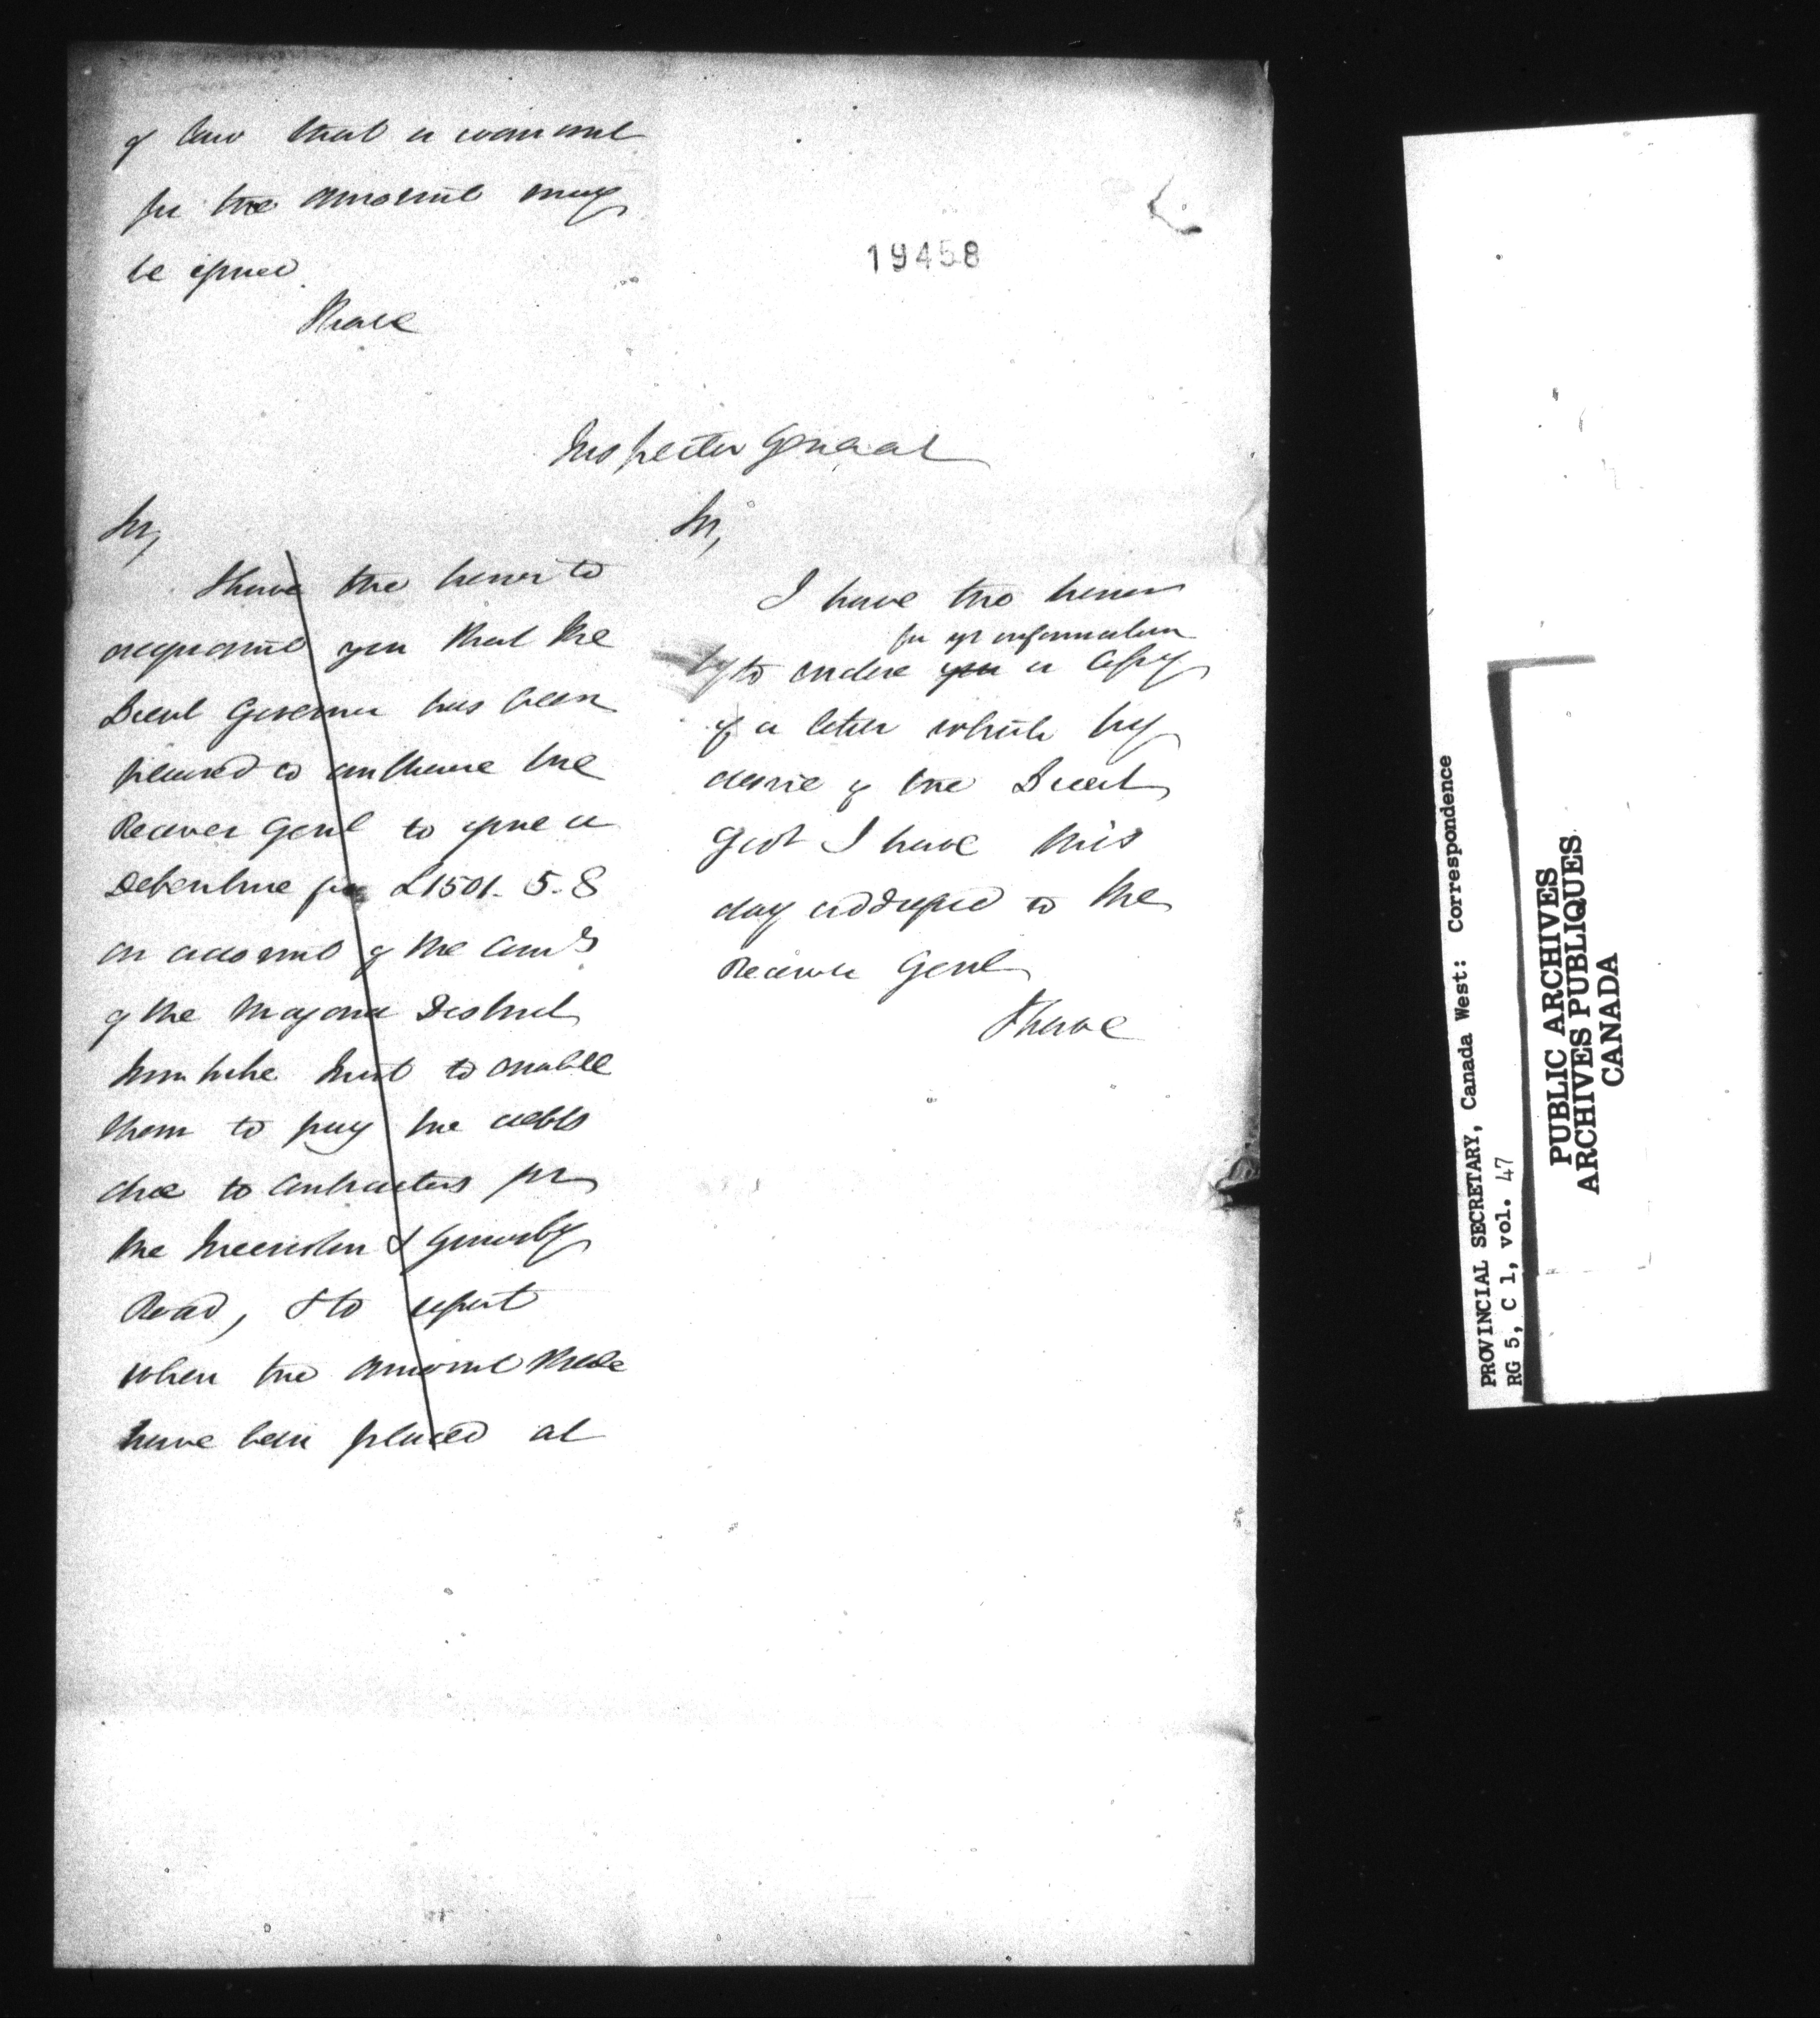 of Law that a warrant
for the amount may
be issued.
I have
19458
Inspector General
Sir,
I have the honor to
acquaint you that the
Lieut Governor has been
pleased to authorize the
Receiver Genl to issue a
Debenture for £1501. 5. 8
on account of the Comrs
of the Niagara District
Turnpike Trust to enable
them to pay the debts
due to Contractors for
the & Grimsby
Road, & to report
when the amount shall
have been placed at
Sir,
I have the honor
for yr information
to enclose you a Copy
of a letter which by
desire of the Lieut
Govr I have this
day addressed to the
Receiver Genl
I have
PROVINCIAL SECRETARY, Canada West: Correspondence
RG 5, C 1, vol. 47
PUBLIC ARCHIVES
ARCHIVES PUBLIQUES
CANADA